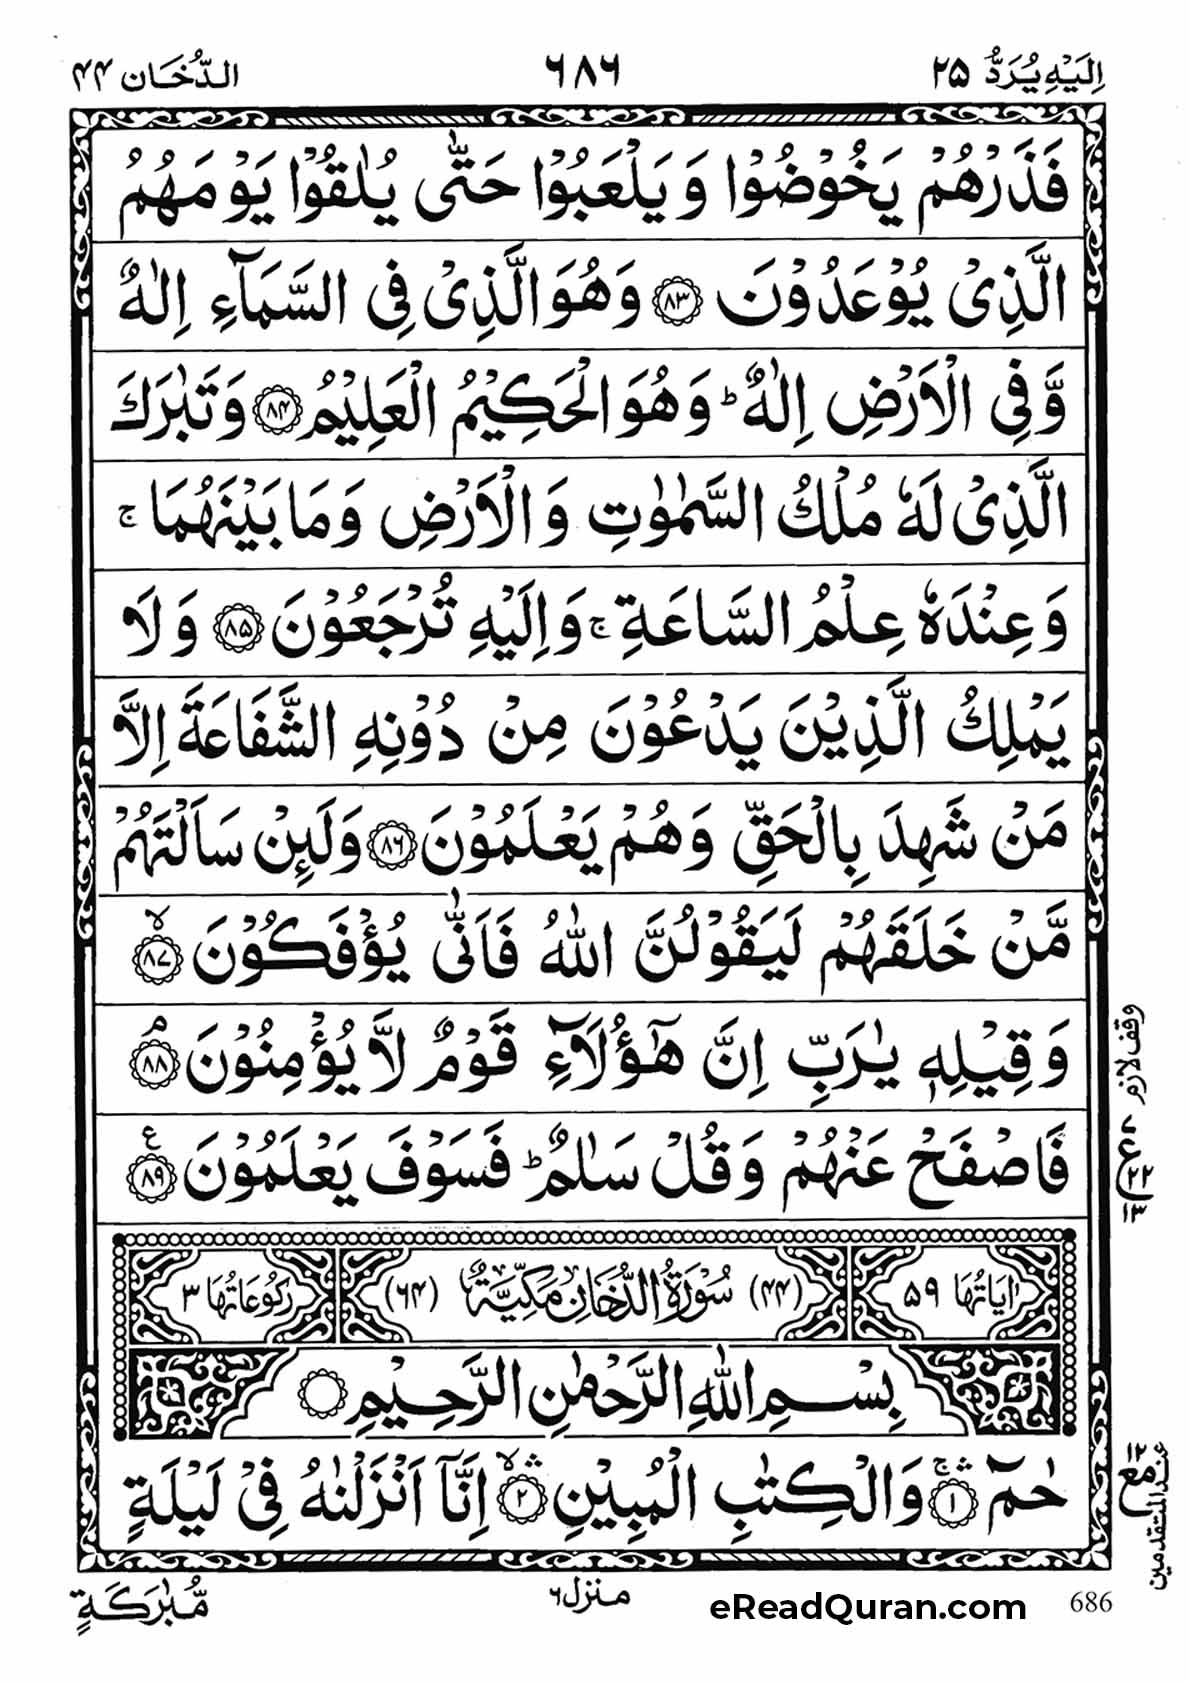 اِلَيْهِ يُرَدُّ ٢٥
٦٨٦
الدُّخَان ٤٤
فَذَرْهُمْ يَخُوْضُوْا وَيَلْعَبُوْا حَتّٰى يُلٰقُوْا يَوْمَهُمُ
الَّذِىْ يُوْعَدُوْنَ ﴿٨٣﴾ وَهُوَ الَّذِىْ فِى السَّمَآءِ اِلٰهٌ
وَّفِى الْاَرْضِ اِلٰهٌ ؕ وَهُوَ الْحَكِيْمُ الْعَلِيْمُ ﴿٨٤﴾ وَتَبٰرَكَ
الَّذِىْ لَهٗ مُلْكُ السَّمٰوٰتِ وَالْاَرْضِ وَمَا بَيْنَهُمَا ۚ
وَعِنْدَهٗ عِلْمُ السَّاعَةِ ۚ وَاِلَيْهِ تُرْجَعُوْنَ ﴿٨٥﴾ وَلَا
يَمْلِكُ الَّذِيْنَ يَدْعُوْنَ مِنْ دُوْنِهِ الشَّفَاعَةَ اِلَّا
مَنْ شَهِدَ بِالْحَقِّ وَهُمْ يَعْلَمُوْنَ ﴿٨٦﴾ وَلَئِنْ سَاَلْتَهُمْ
مَّنْ خَلَقَهُمْ لَيَقُوْلُنَّ اللّٰهُ فَاَنّٰى يُؤْفَكُوْنَ ۙ﴿٨٧﴾
وَقِيْلِهٖ يٰرَبِّ اِنَّ هٰٓؤُلَآءِ قَوْمٌ لَّا يُؤْمِنُوْنَ ۘ﴿٨٨﴾
وقف لازم
فَاصْفَحْ عَنْهُمْ وَقُلْ سَلٰمٌ ؕ فَسَوْفَ يَعْلَمُوْنَ ﴿٨٩﴾ ع
اٰيَاتُهَا ٥٩
(٤٤) سُوْرَةُ الدُّخَانِ مَكِّيَّةٌ (٦٤)
رُكُوْعَاتُهَا ٣
بِسْمِ اللّٰهِ الرَّحْمٰنِ الرَّحِيْمِ
حٰمٓ ۚ﴿١﴾ وَالْكِتٰبِ الْمُبِيْنِ ۙ﴿٢﴾ اِنَّآ اَنْزَلْنٰهُ فِىْ لَيْلَةٍ
عند المتقدمين
مُّبٰرَكَةٍ
منزل ٦
eReadQuran.com
686